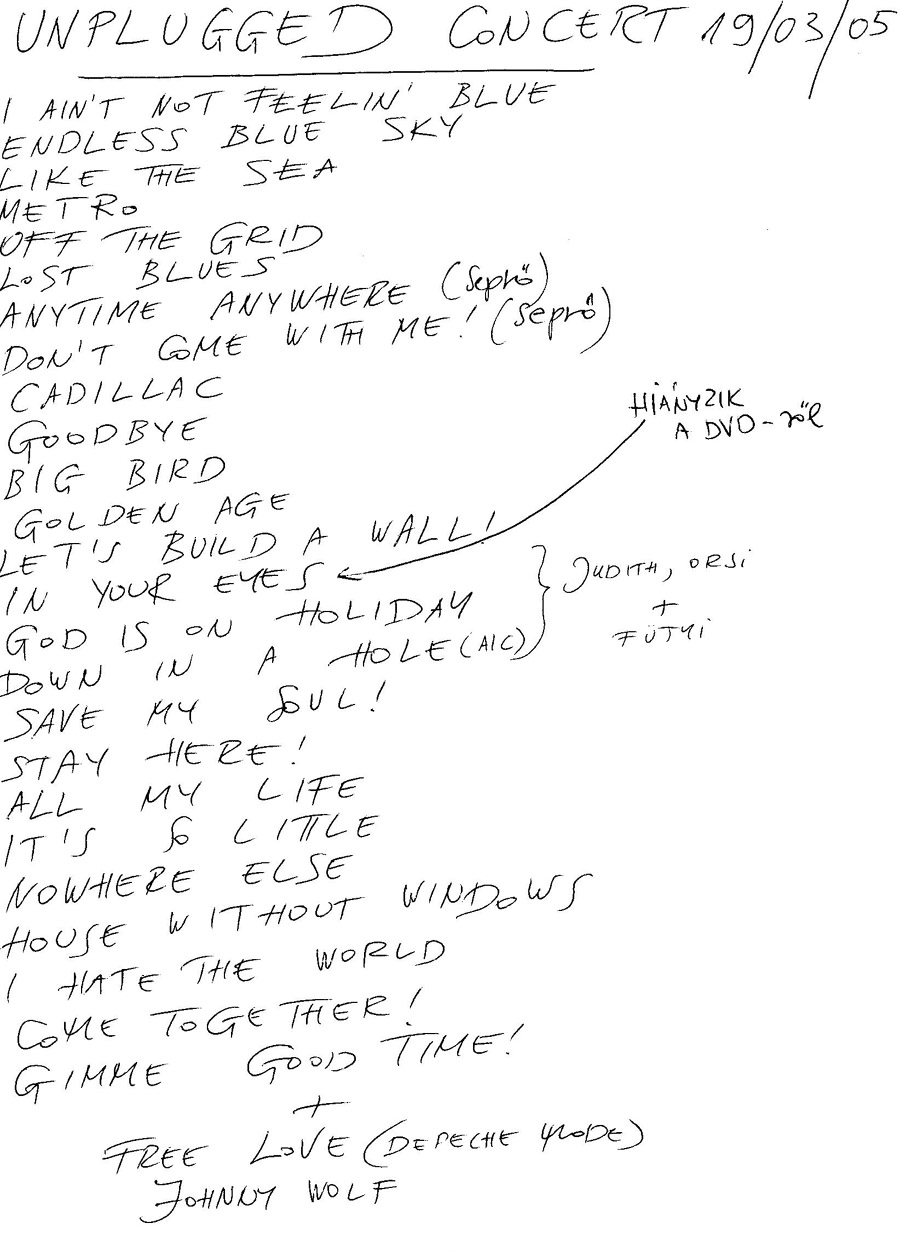 UNPLUGGED CONCERT 19/03/05
I AIN'T NOT FEELIN' BLUE
ENDLESS BLUE SKY
LIKE THE SEA
METRO
OFF THE GRID
LOST BLUES
ANYTIME ANYWHERE (Seprő)
DON'T COME WITH ME! (Seprő)
CADILLAC
GOODBYE
HIÁNYZIK
A DVD-ről
BIG BIRD
GOLDEN AGE
LET'S BUILD A WALL!
IN YOUR EYES
GOD IS ON HOLIDAY
DOWN IN A HOLE (AIC)
JUDITH, ORSI
+
FÜTYI
SAVE MY SOUL!
STAY HERE!
ALL MY LIFE
IT'S SO LITTLE
NOWHERE ELSE
HOUSE WITHOUT WINDOWS
I HATE THE WORLD
COME TOGETHER!
GIMME GOOD TIME!
+
FREE LOVE (DEPECHE MODE)
JOHNNY WOLF